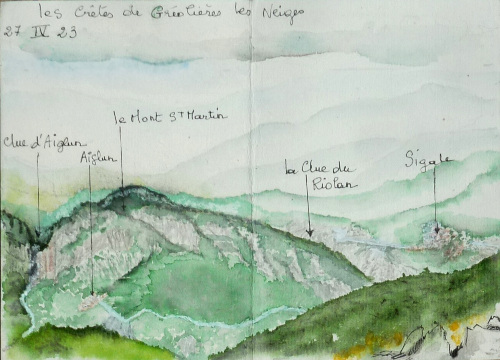 les Crêtes de Gréolières les Neiges
27 IV 23
le Mont St Martin
Clue d'Aiglun
Aiglun
La Clue du
Riolan
Sigale